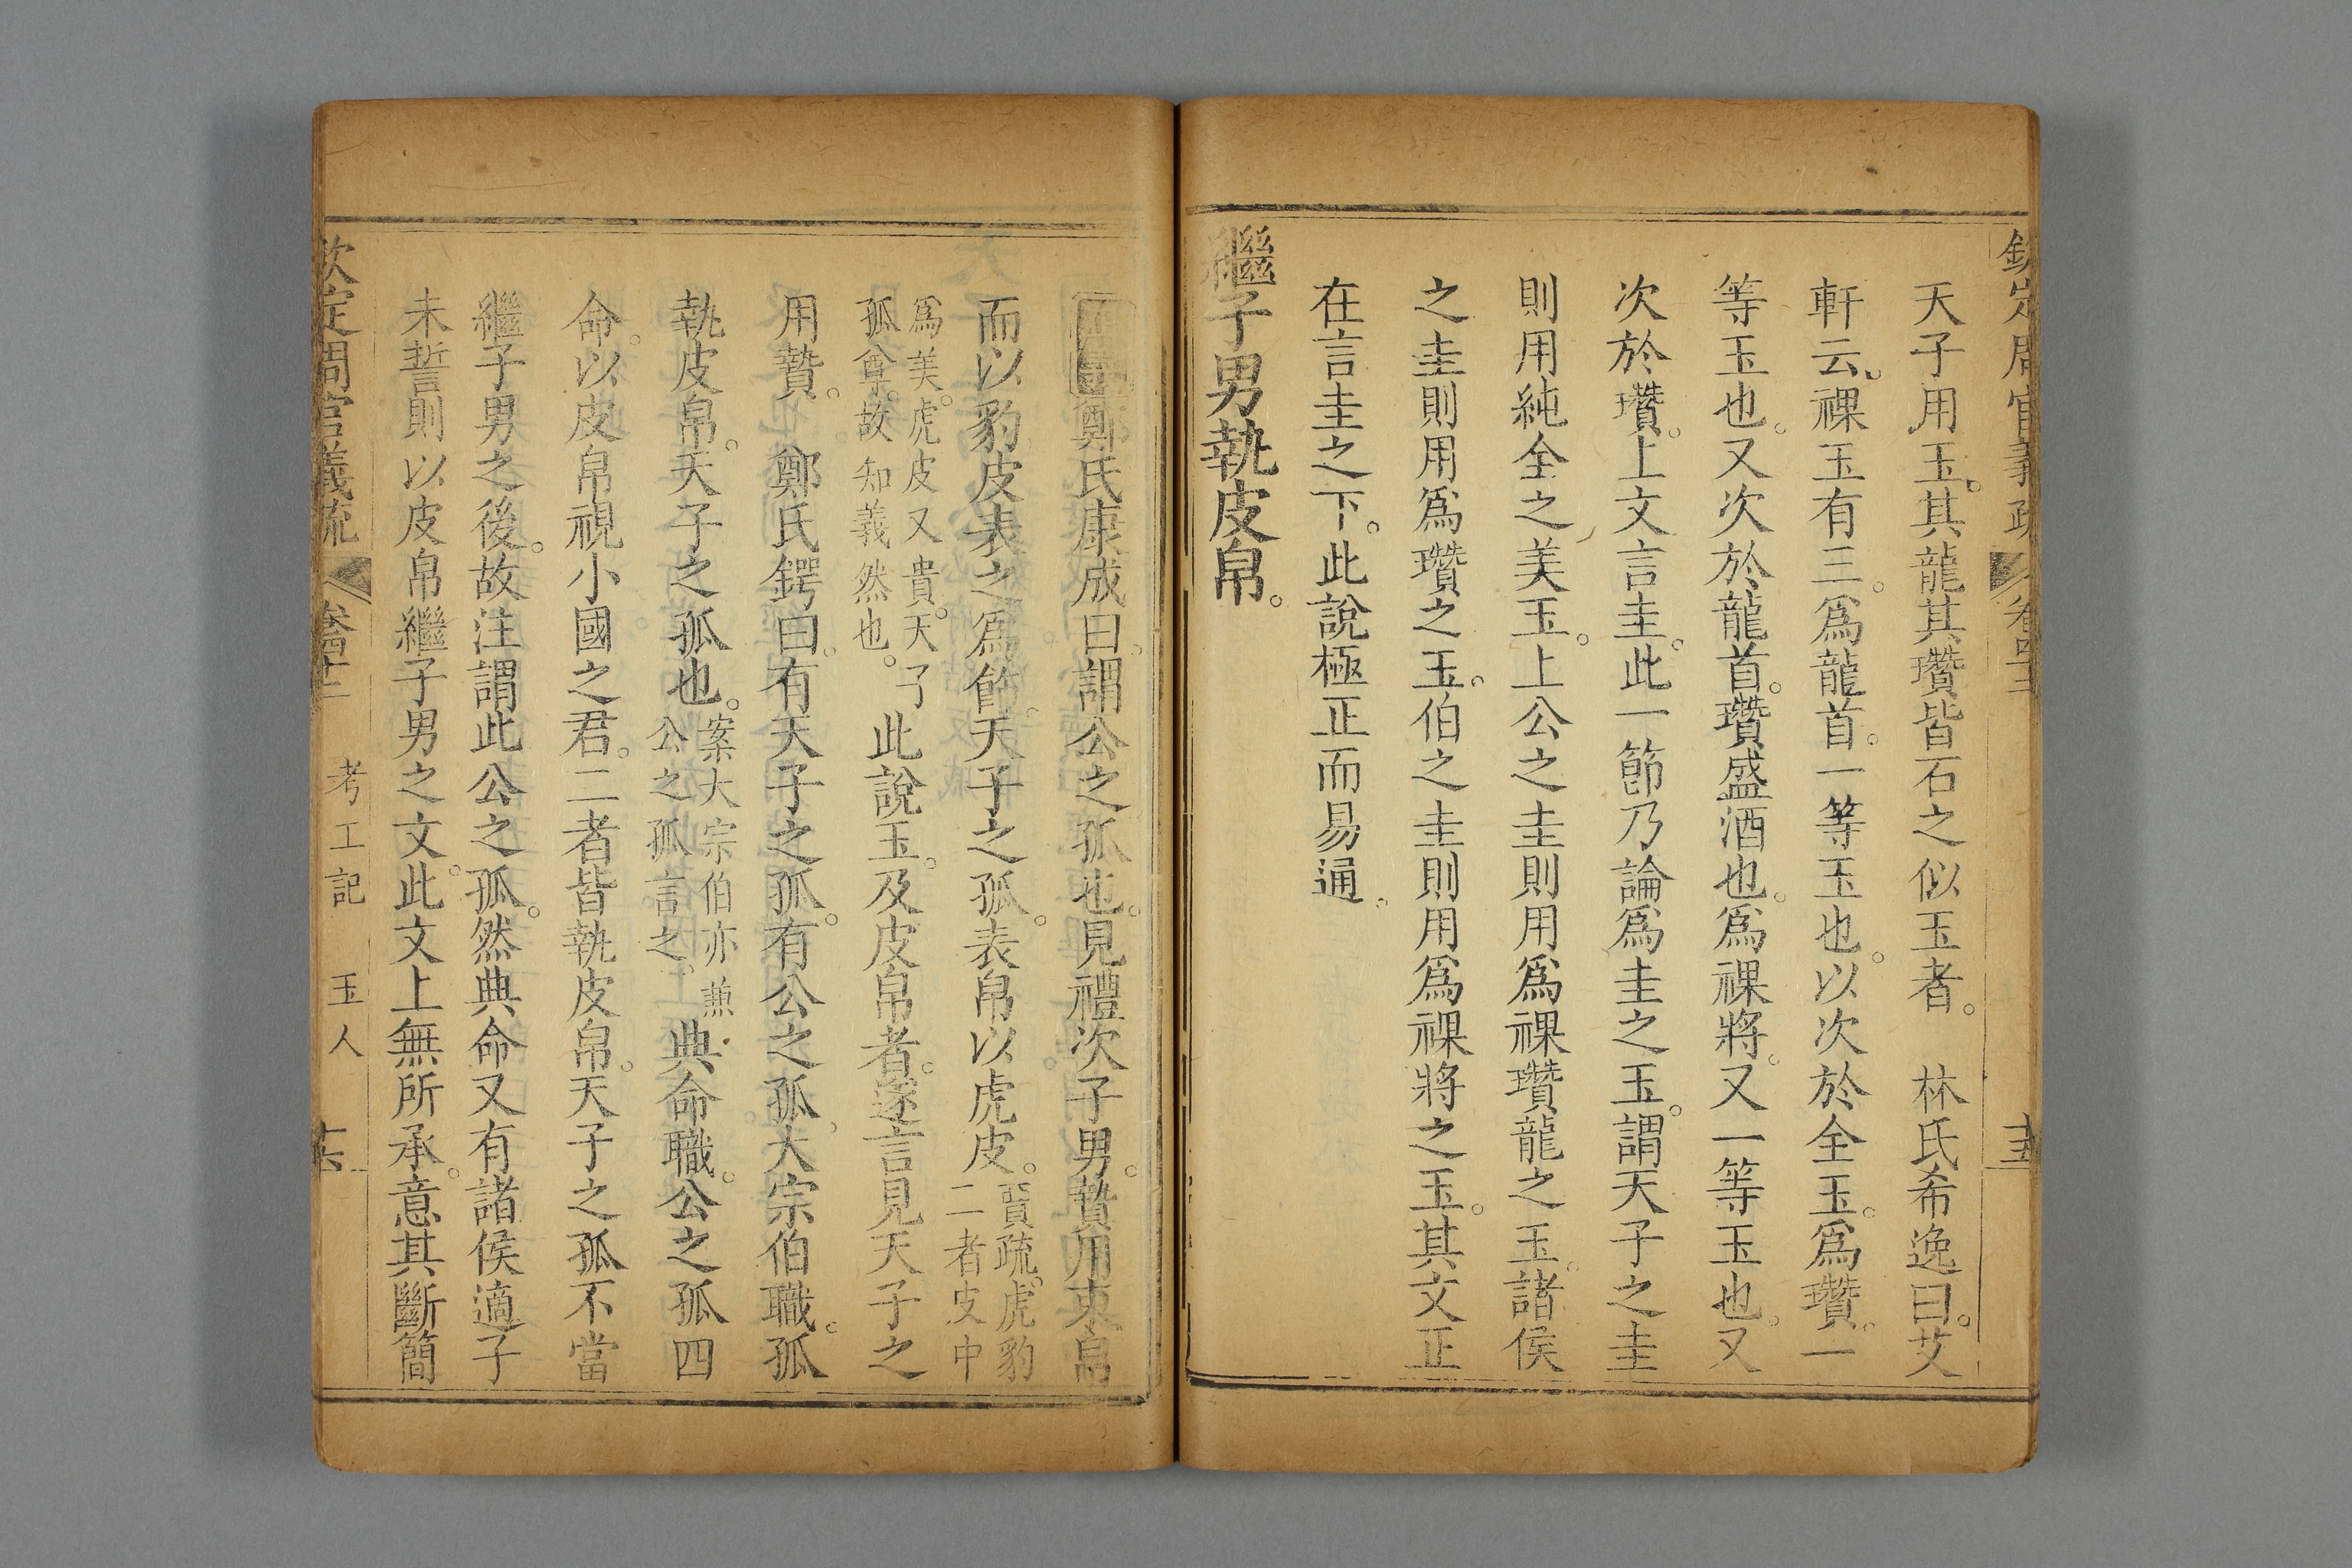 天子用玉。其龍其瓚皆石之似玉者。　林氏希逸曰。艾
軒云。祼玉有三。爲龍首。一等玉也。以次於全玉。爲瓚。一
等玉也。又次於龍首。瓚盛酒也。爲祼將。又一等玉也。又
次於瓚。上文言圭。此一節乃論爲圭之玉。謂天子之圭
則用純全之美玉。上公之圭則用爲祼瓚龍之玉。諸侯
之圭則用爲瓚之玉。伯之圭則用爲祼將之玉。其文正
在言圭之下。此說極正而易通。
繼子男執皮帛。
鄭氏康成曰。謂公之孤也。見禮次子男。贄用束帛
而以豹皮表之爲飾。天子之孤。表帛以虎皮。賈疏。虎豹
二者皮中
爲美。虎皮又貴。天子
孤尊。故知義然也。此說玉。及皮帛者。遂言見天子之
用贄。　鄭氏鍔曰。有天子之孤。有公之孤。大宗伯職。孤
執皮帛。天子之孤也。案大宗伯亦兼
公之孤言之。典命職。公之孤四
命。以皮帛視小國之君。二者皆執皮帛。天子之孤不當
繼子男之後。故注謂此公之孤。然典命又有諸侯適子
未誓則以皮帛繼子男之文。此文上無所承。意其斷簡
欽定周官義疏　考工記　玉人